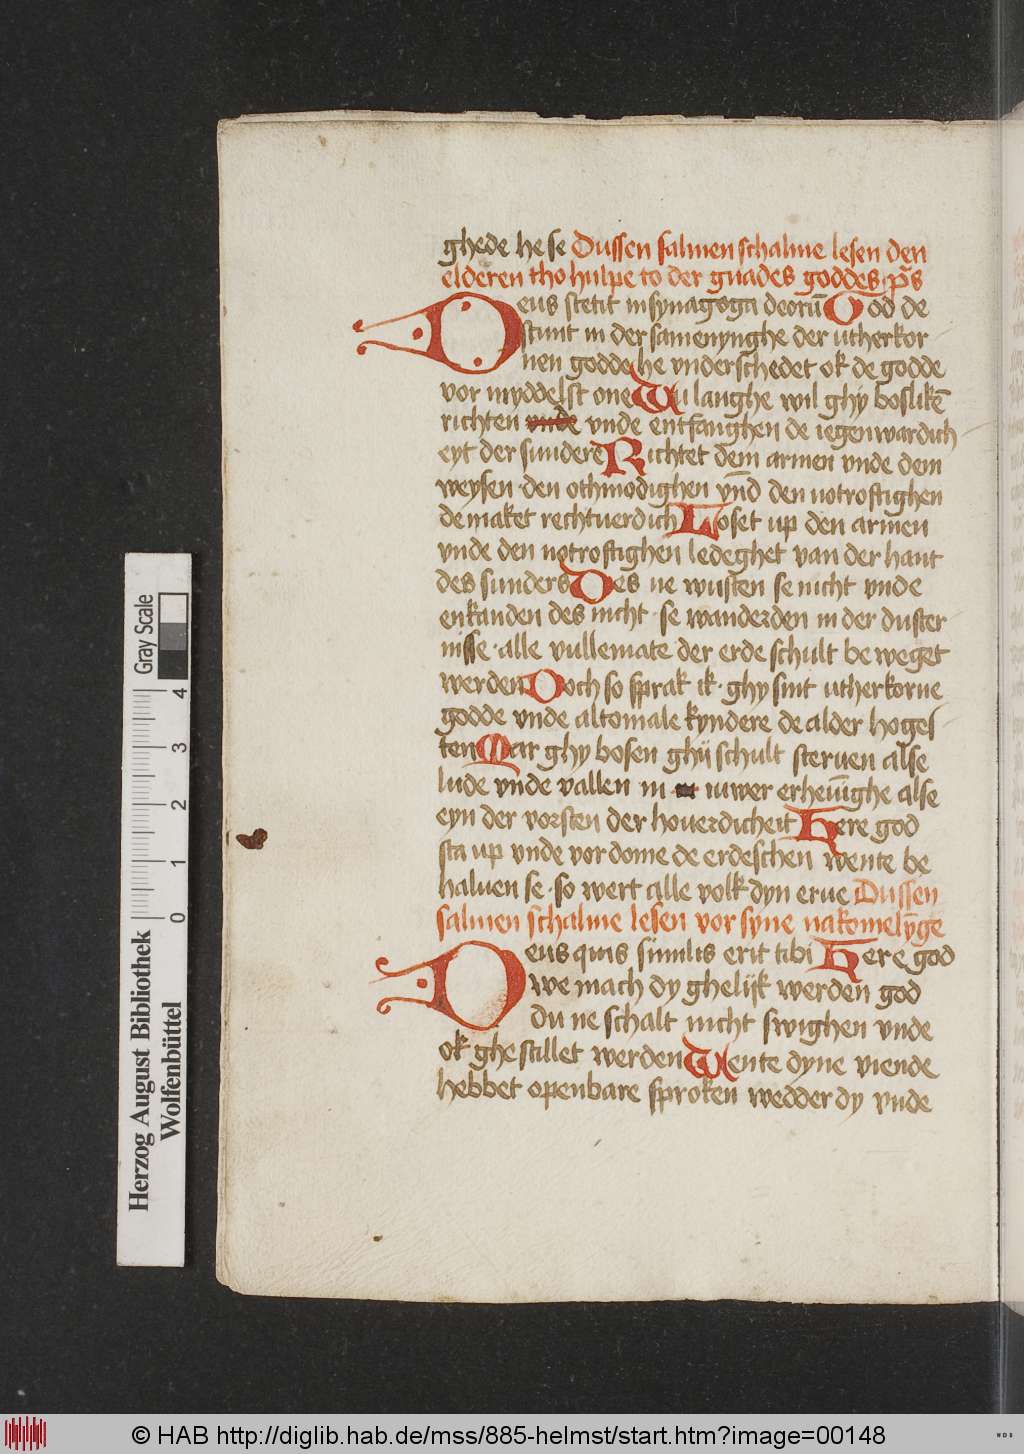 ghede he se Dussen salmen schalme lesen den
elderen tho hulpe to der gnades goddes p̄s
Deus stetit in synagoga deorū God de
stunt in der samenynghe der utherkor
nen godde he vnderschedet ok de godde
vor myddelst one Wu langhe wil ghy boslikē
richten vnde vnde entfanghen de iegenwardich
eyt der sunderē Richtet dem armen vnde dem
weysen · den othmodighen vn̄d den notroftighen
de maket rechtuerdich Loset up den armen
vnde den notroftighen ledeghet van der hant
des sunders Des ne wusten se nicht vnde
enkanden des nicht · se wanderden in der duster
nisse · alle vullemate der erde schult beweget
werden Doch so sprak ik · ghy sint utherkorne
godde vnde altomale kyndere de alder hoges
ten Mar ghy bosen ghy schult sterven alse
lude vnde vallen in iuwer erheuīghe alse
eyn der vorsten der houerdicheit Here god
sta up vnde vordome de erdeschen wente be
haluen se · so wert alle volk dyn erue Dussen
salmen schalme lesen vor syne nakomelȳge
Deus quis similis erit tibi Here god
we mach dy ghelijk werden god
du ne schalt nicht swighen vnde
ok ghestillet werden Wente dyne viende
hebbet openbare sproken wedder dy vnde
Gray Scale
4
3
2
1
0
Herzog August Bibliothek
Wolfenbüttel
© HAB http://diglib.hab.de/mss/885-helmst/start.htm?image=00148